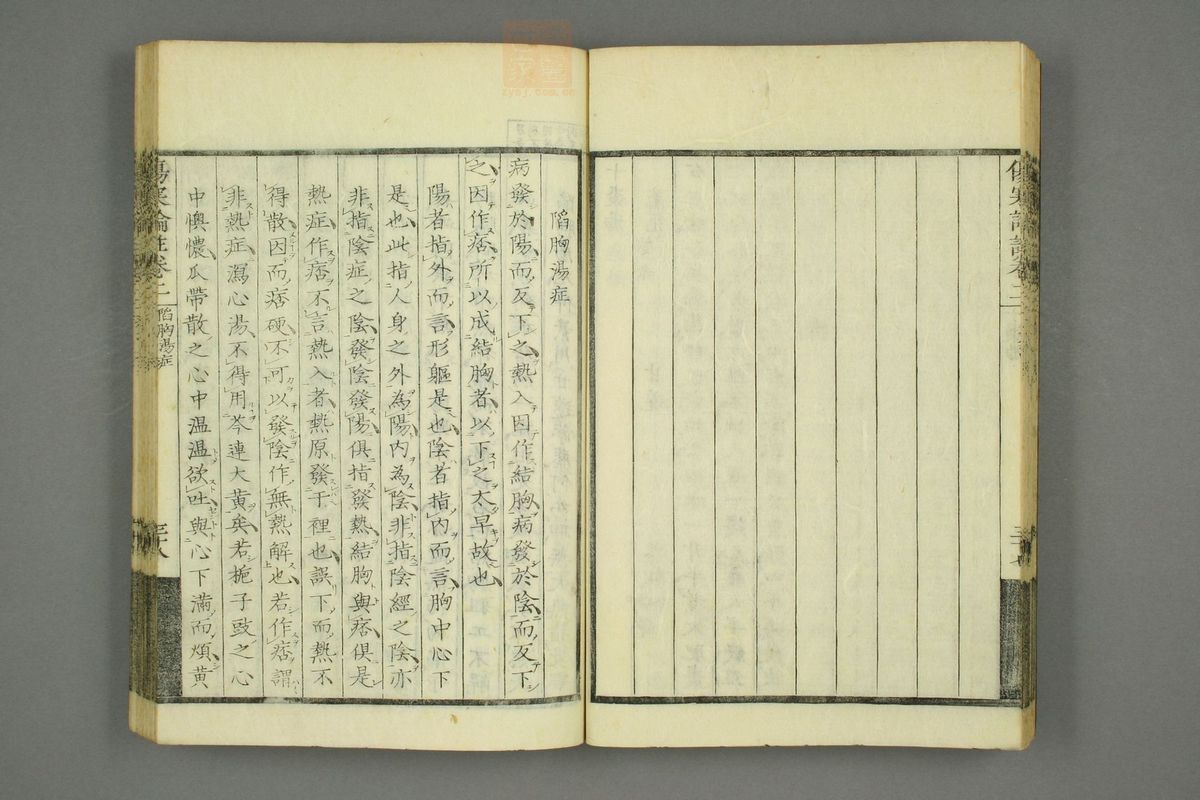 傷寒論註卷二
陷胸湯症
病發於陽而反下之熱入因作結胸病發於陰而反下
之因作痞所以成結胸者以下之太早故也
陽者指外而言形軀是也陰者指內而言胸中心下
是也此指人身之外為陽內為陰非指陰經之陰亦
非指陰症之陰發陰發陽俱指發熱結胸與痞俱是
熱症作痞不言熱入者熱原發于裡也誤下而熱不
得散因而痞硬不可以發陰作無熱解也若作痞謂
非熱症瀉心湯不得用芩連大黃矣若梔子豉之心
中懊憹瓜蒂散之心中溫溫欲吐與心下滿而煩黃
傷寒論註卷二
陷胸湯症
三十八
zysj.com.cn